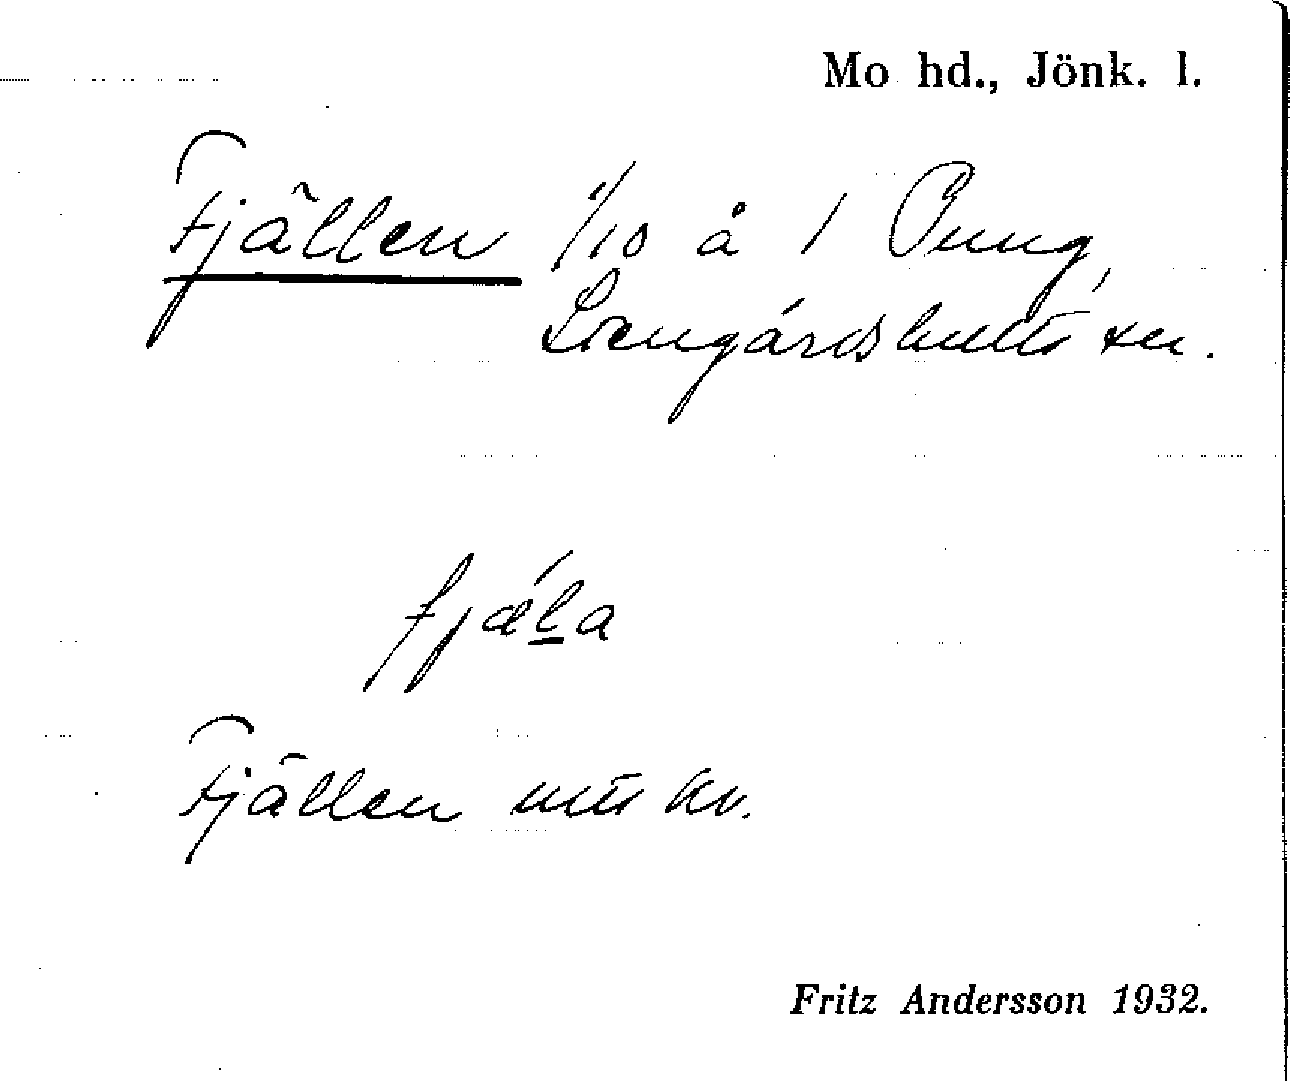 Mo hd., Jönk. l.
Fjällen 1/10 å 1 Pung,
Långårdshults sn.
fjæĺa
Fjällen mts kv.
Fritz Andersson 1932.